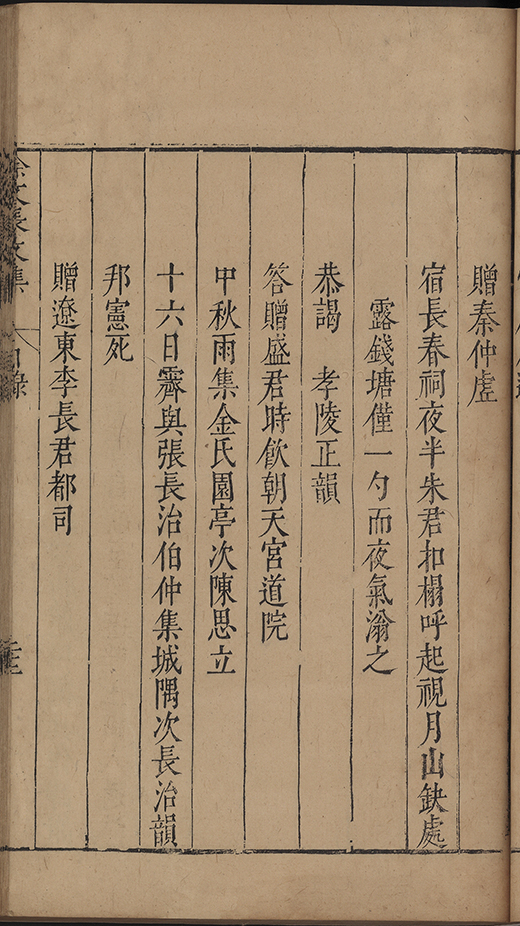 贈秦仲虛
宿長春祠夜半朱君扣榻呼起視月山缺處
露錢塘僅一勺而夜氣滃之
恭謁　孝陵正韻
答贈盛君時飲朝天宮道院
中秋雨集金氏園亭次陳思立
十六日霽與張長治伯仲集城隅次長治韻
邦憲死
贈遼東李長君都司
徐文長文集 目錄